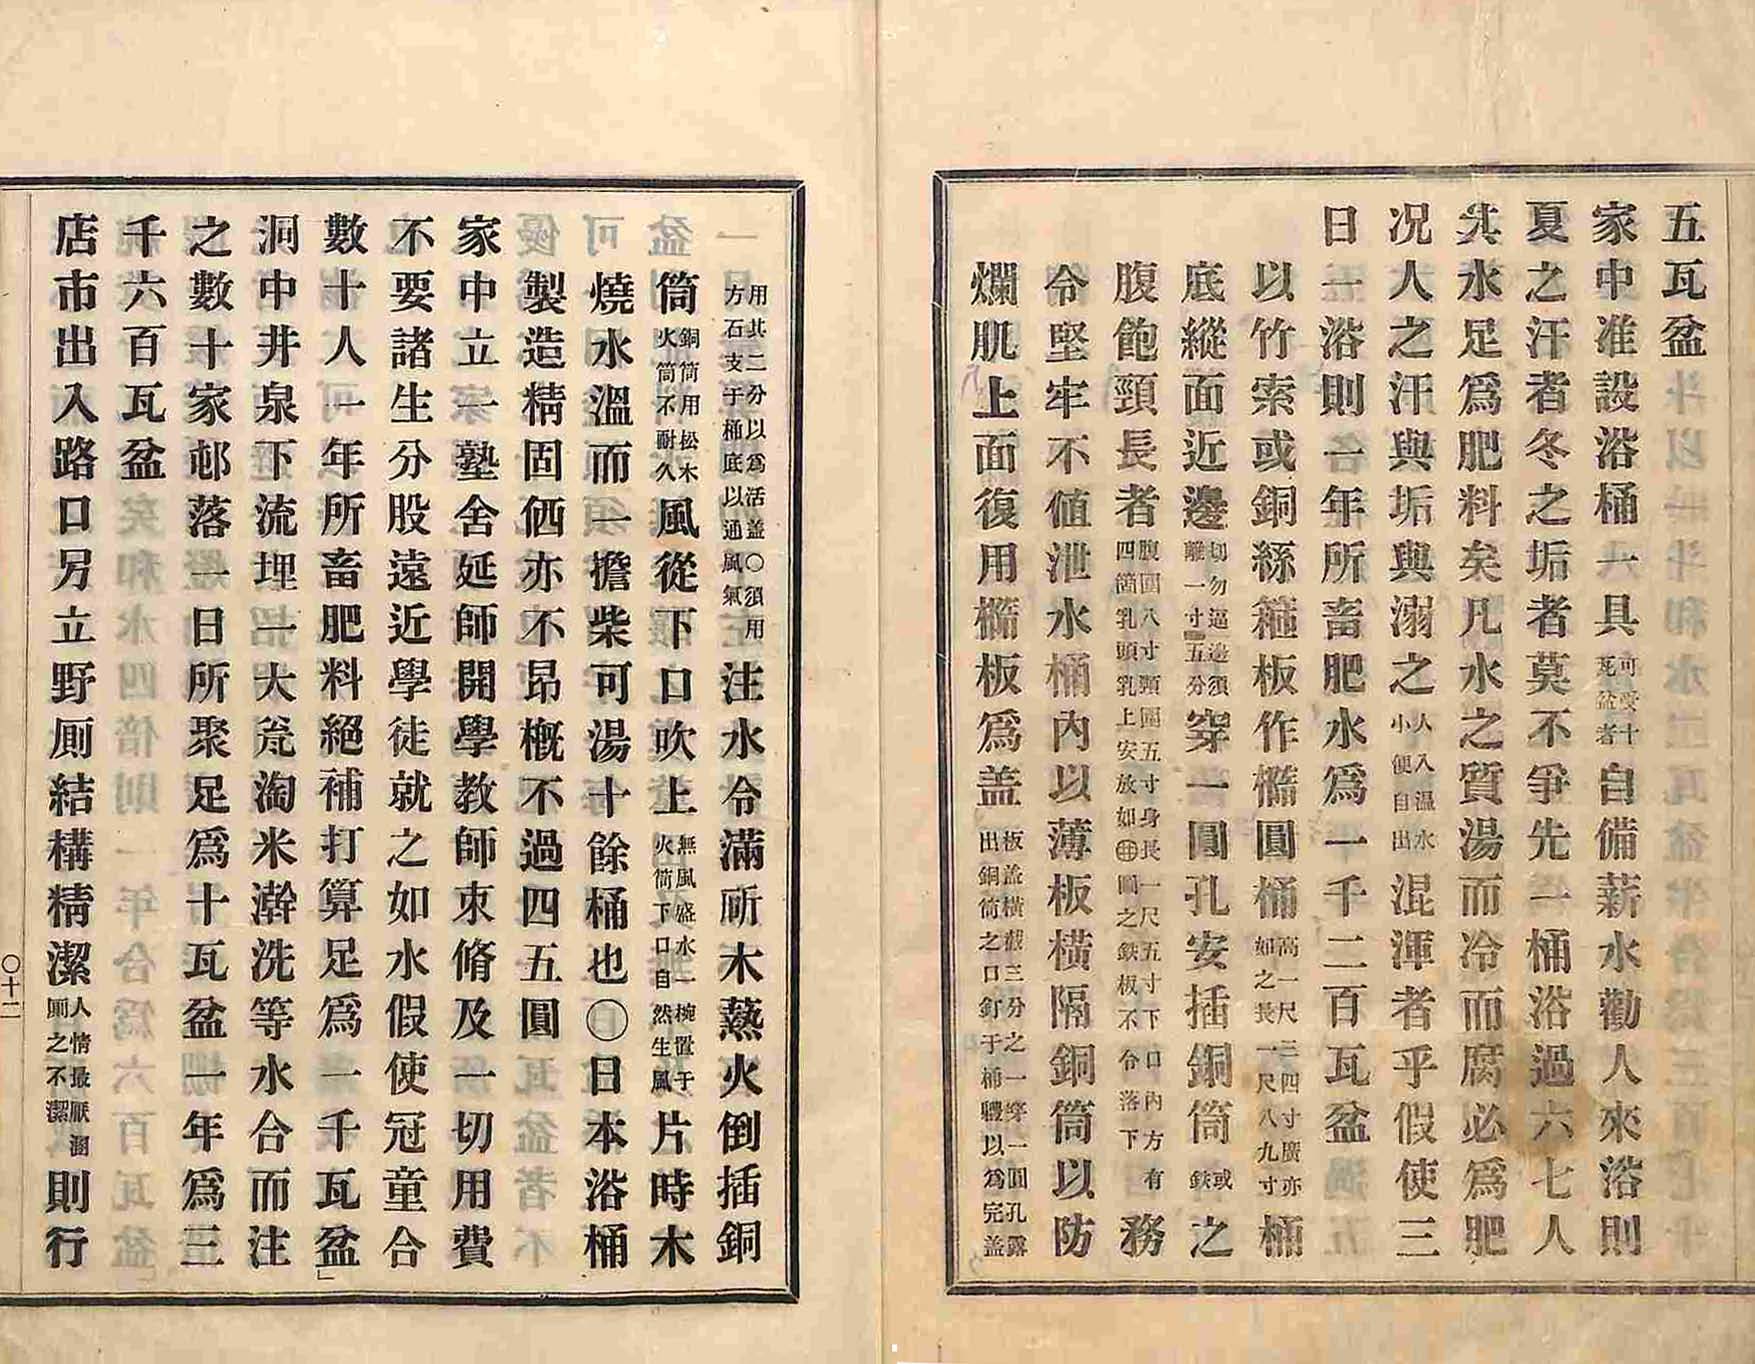 五瓦盆
家中准設浴桶一具可受十瓦盆者自備薪水勸人來浴則
夏之汗者冬之垢者莫不爭先一桶浴過六七人
共水足爲肥料矣凡水之質湯而冷而腐必爲肥
况人之汗與垢與溺之人入溫水小便自出混渾者乎假使三
日一浴則一年所畜肥水爲一千二百瓦盆
以竹索或銅絲箍板作檻圓桶高一尺三四寸廣亦如之長一尺八九寸桶
底縱面近邊切勿逼邊須離一寸五分穿一圓孔安插銅筒或鉄之
腹飽頸長者腹圓八寸頸圓五寸身長一尺五寸下口內方有四箇乳頭乳上安放如㊉圖之鉄板不令落下務
令堅牢不値泄水桶內以薄板橫隔銅筒以防
爛肌上面復用檻板爲盖板盖橫截三分之一穿一圓孔露出銅筒之口釘于桶軆以爲完盖
用其二分以爲活盖○須用方石支于桶底以通風氣注水令滿斫木爇火倒插銅
筒銅筒用松木火筒不耐久風從下口吹上無風盛水一椀置于火筒下口自然生風片時木
燒水溫而一擔柴可湯十餘桶也○日本浴桶
製造精固価亦不昂槪不過四五圓
家中立一塾舍延師開學教師束脩及一切用費
不要諸生分股遠近學徒就之如水假使冠童合
數十人一年所畜肥料絕補打算足爲一千瓦盆」
洞中井泉下流埋一大瓮淘米澣洗等水合而注
之數十家邨落一日所聚足爲十瓦盆一年爲三
千六百瓦盆
店市出入路口另立野厠結構精潔人情最厭溷圊之不潔則行
○十二